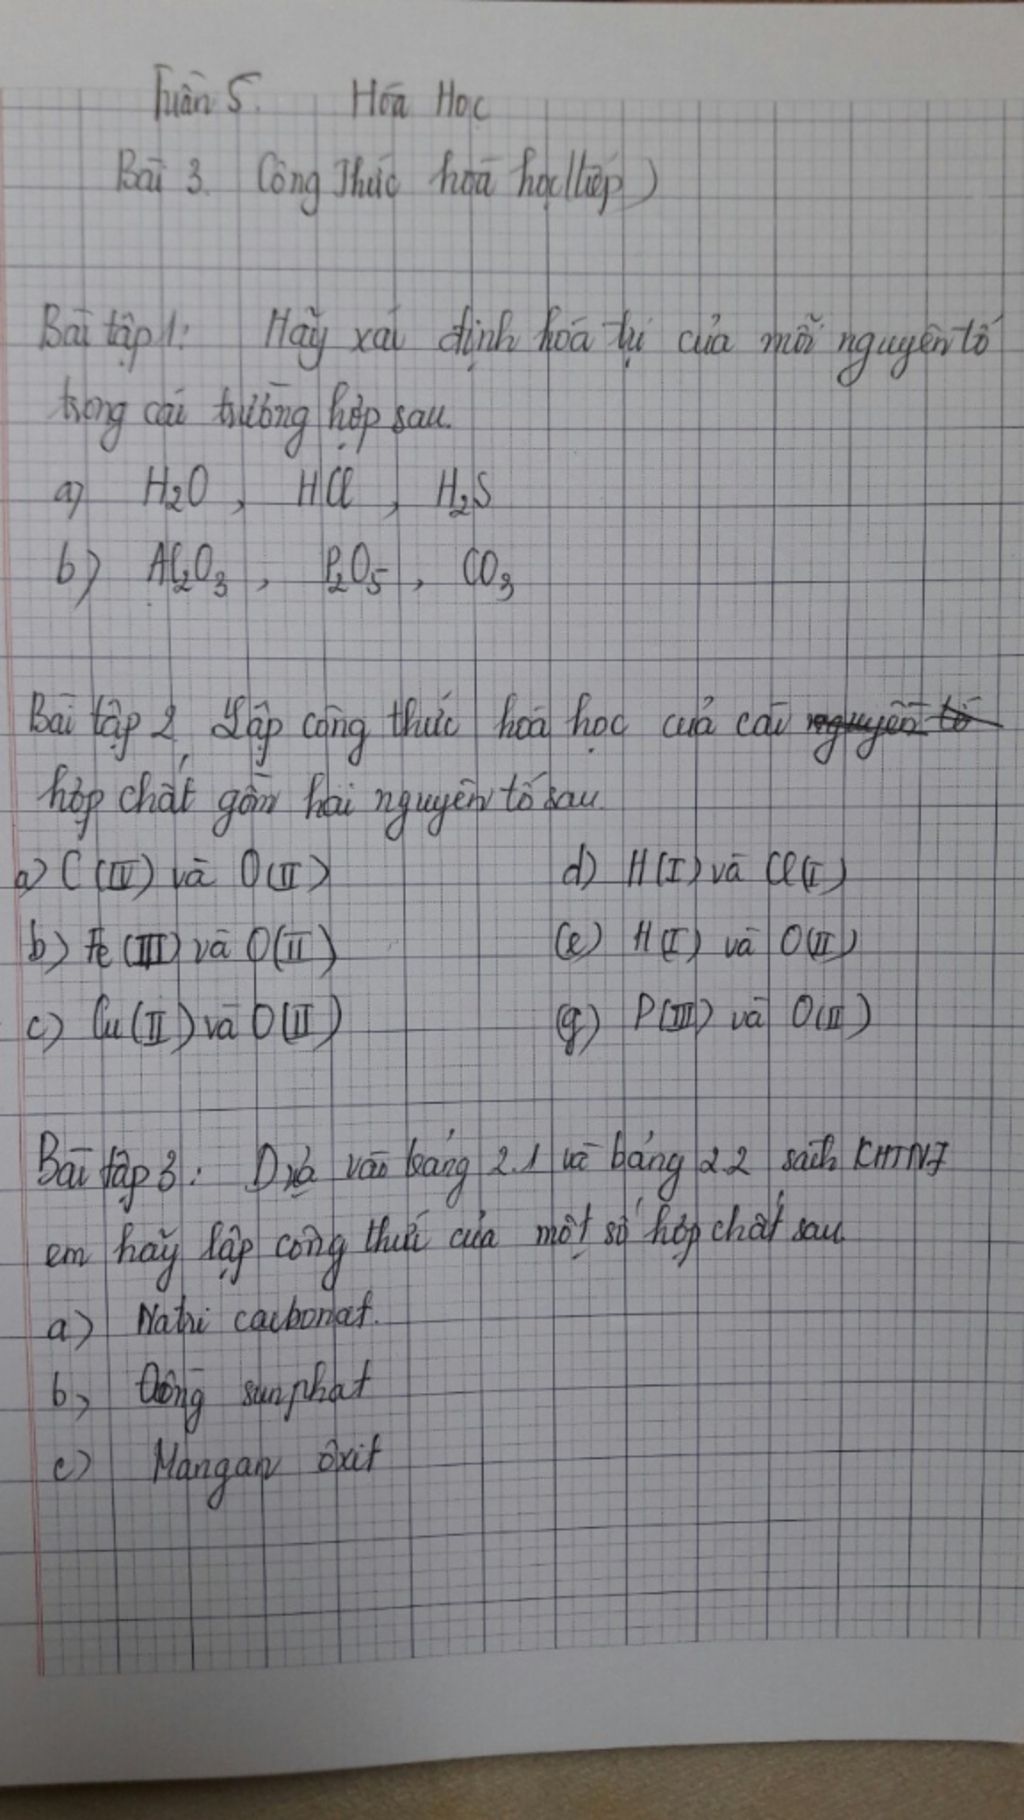 Tuần 5. Hóa Học
Bài 3. Công Thức hoá học (tiếp)
Bài tập 1: Hãy xác định hóa trị của mỗi nguyên tố
trong các trường hợp sau.
a) H₂O, HCl, H₂S
b) Al₂O₃, P₂O₅, CO₃
Bài tập 2. Lập công thức hoá học của các nguyên tố
hợp chất gồm hai nguyên tố sau.
a) C (IV) và O(II) d) H(I) và Cl(I)
b) Fe (III) và O(II) (e) H(I) và O(II)
c) Cu (II) và O(II) (g) P(III) và O(II)
Bài tập 3: Dựa vào bảng 2.1 và bảng 2.2 sách KHTN7
em hãy lập công thức của một số hợp chất sau
a) Natri cacbonat.
b) Đồng sunphat
c) Mangan ôxit